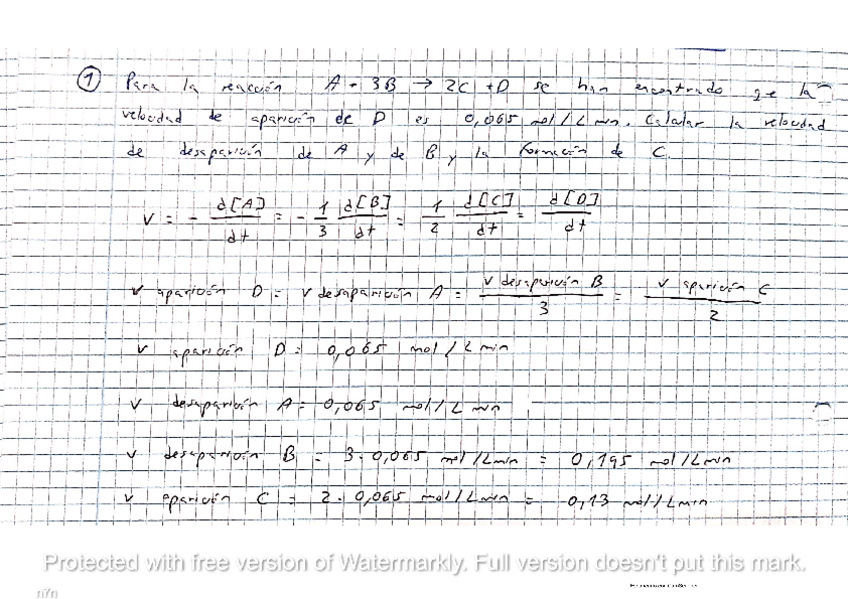 ① Para la reacción A + 3B → 2C + D se han encontrado que la
velocidad de aparición de D es 0,065 mol/L min. Calcular la velocidad
de desaparición de A y de B y la formación de C.
V = - d[A]/dt = - 1/3 d[B]/dt = 1/2 d[C]/dt = d[D]/dt
v aparición D = v desaparición A = v desaparición B / 3 = v aparición C / 2
v aparición D = 0,065 mol/L min
v desaparición A = 0,065 mol/L min
v desaparición B = 3 · 0,065 mol/L min = 0,195 mol/L min
v aparición C = 2 · 0,065 mol/L min = 0,13 mol/L min
Protected with free version of Watermarkly. Full version doesn't put this mark.